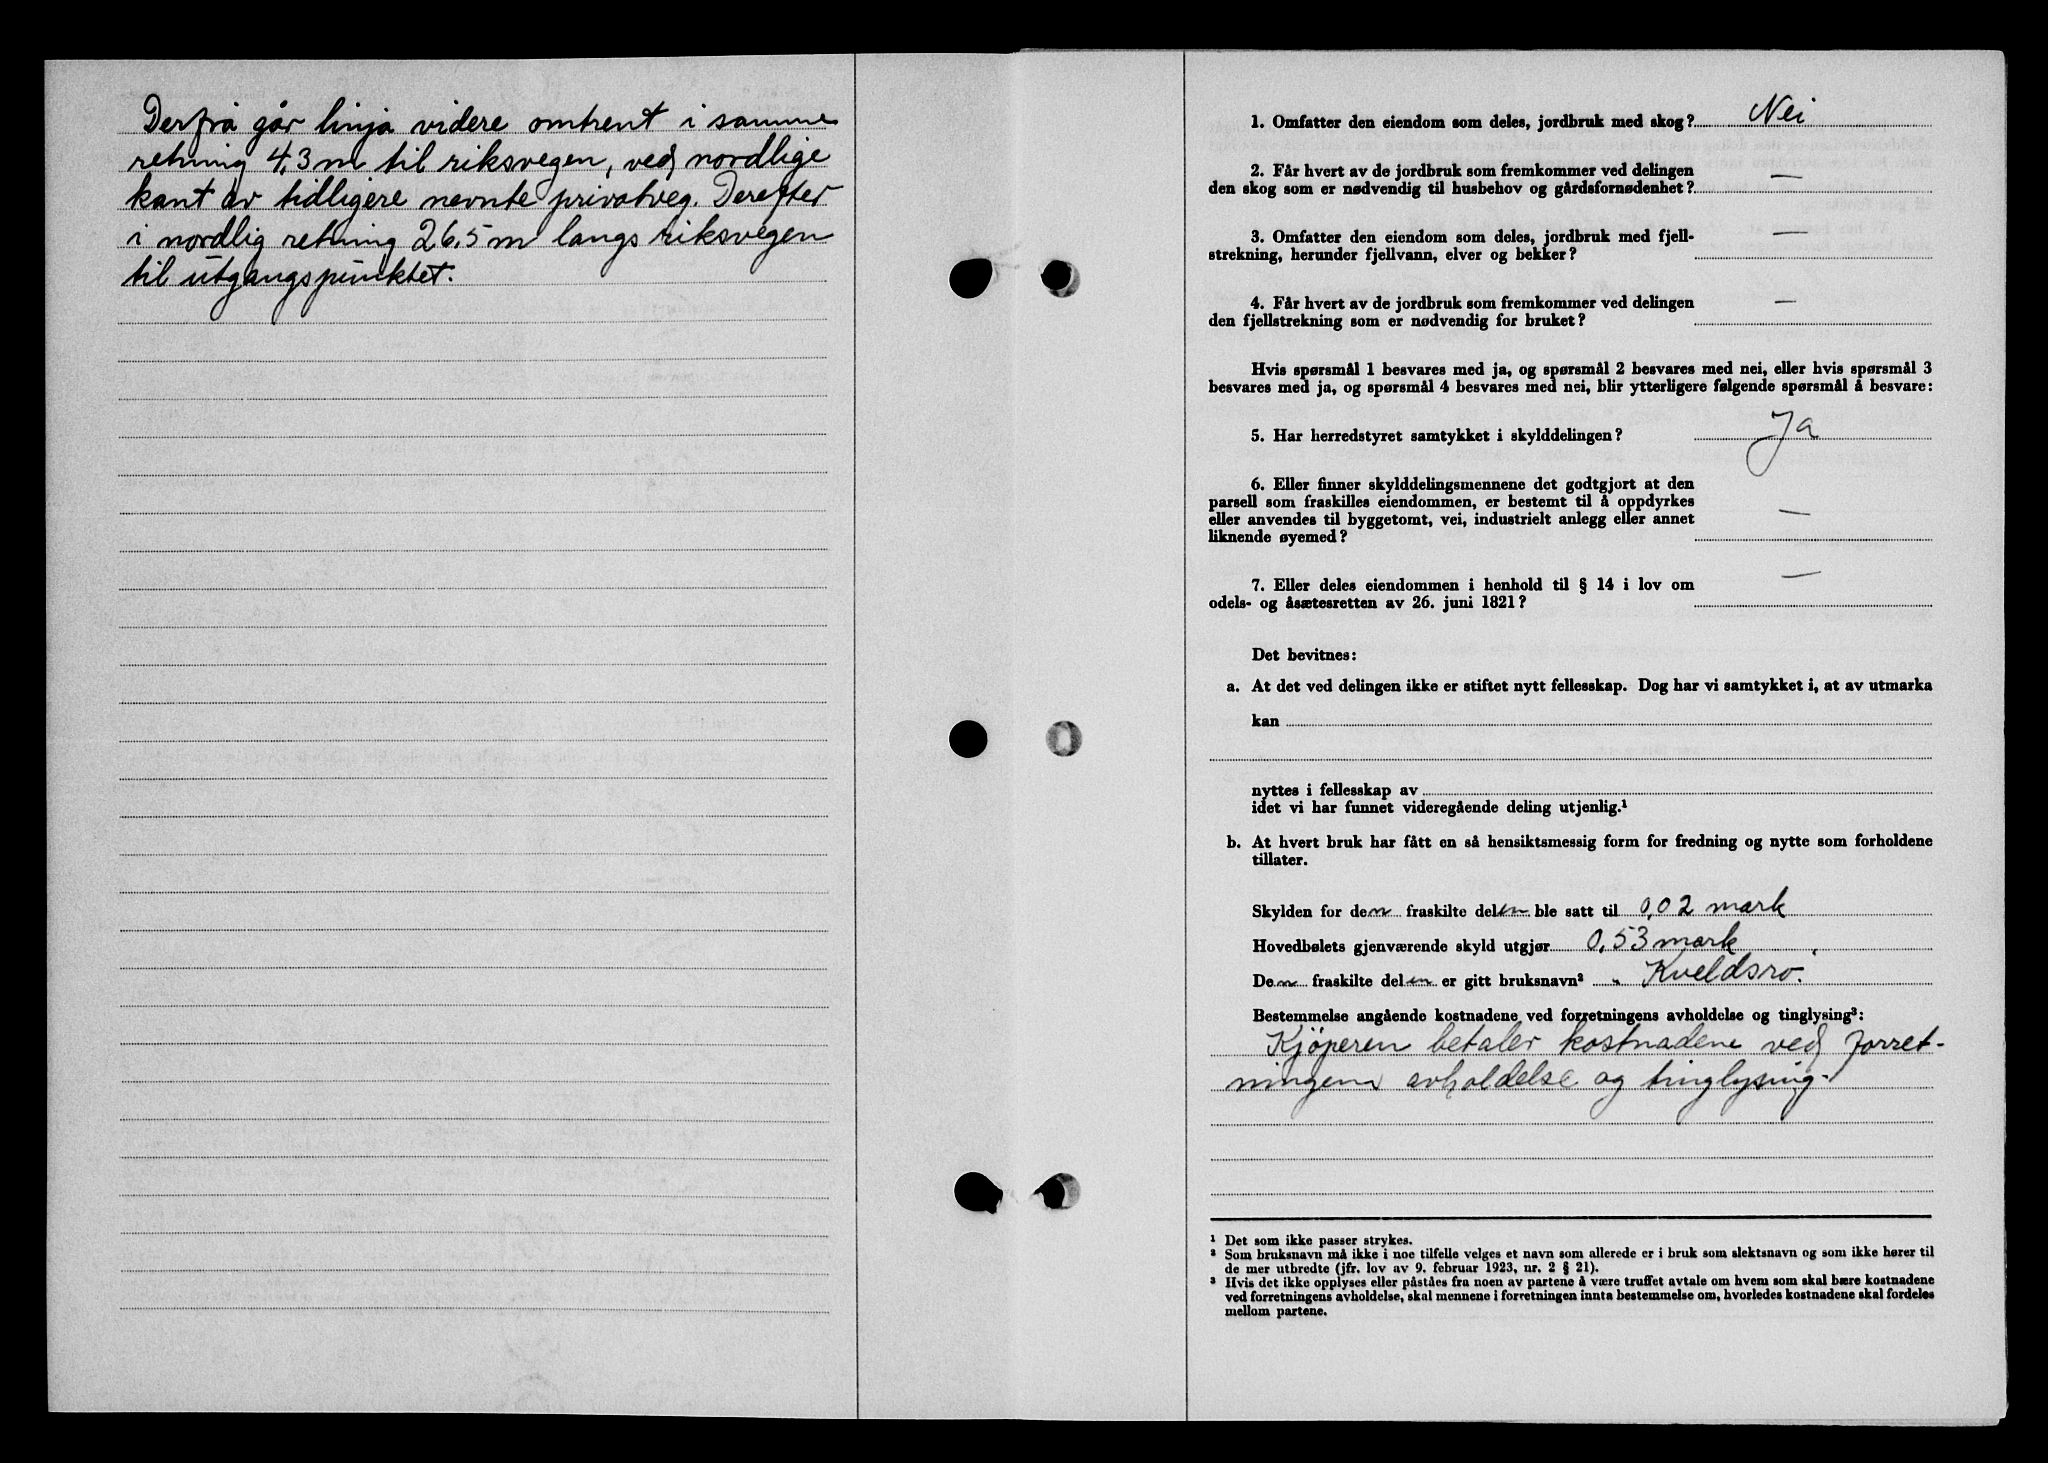 Derfra går linja videre omtrent i samme
retning 4,3 m til riksvegen, ved nordlige
kant av tidligere nevnte privatveg. Derefter
i nordlig retning 26,5 m langs riksvegen
til utgangspunktet.
1. Omfatter den eiendom som deles, jordbruk med skog? Nei
2. Får hvert av de jordbruk som fremkommer ved delingen
den skog som er nødvendig til husbehov og gårdsfornødenhet? —
3. Omfatter den eiendom som deles, jordbruk med fjell-
strekning, herunder fjellvann, elver og bekker? —
4. Får hvert av de jordbruk som fremkommer ved delingen
den fjellstrekning som er nødvendig for bruket? —
Hvis spørsmål 1 besvares med ja, og spørsmål 2 besvares med nei, eller hvis spørsmål 3
besvares med ja, og spørsmål 4 besvares med nei, blir ytterligere følgende spørsmål å besvare:
5. Har herredstyret samtykket i skylddelingen? Ja
6. Eller finner skylddelingsmennene det godtgjort at den
parsell som fraskilles eiendommen, er bestemt til å oppdyrkes
eller anvendes til byggetomt, vei, industrielt anlegg eller annet
liknende øyemed? —
7. Eller deles eiendommen i henhold til § 14 i lov om
odels- og åsætesretten av 26. juni 1821? —
Det bevitnes:
a. At det ved delingen ikke er stiftet nytt fellesskap. Dog har vi samtykket i, at av utmarka
kan
nyttes i fellesskap av
idet vi har funnet videregående deling utjenlig.¹
b. At hvert bruk har fått en så hensiktsmessig form for fredning og nytte som forholdene
tillater.
Skylden for den fraskilte delen ble satt til 0,02 mark
Hovedbølets gjenværende skyld utgjør 0,53 mark
Den fraskilte delen er gitt bruksnavn² Kveldsro.
Bestemmelse angående kostnadene ved forretningens avholdelse og tinglysing³:
Kjöperen betaler kostnadene ved forret-
ningens avholdelse og tinglysing.
¹ Det som ikke passer strykes.
² Som bruksnavn må ikke i noe tilfelle velges et navn som allerede er i bruk som slektsnavn og som ikke hører til
de mer utbredte (jfr. lov av 9. februar 1923, nr. 2 § 21).
³ Hvis det ikke opplyses eller påståes fra noen av partene å være truffet avtale om hvem som skal bære kostnadene
ved forretningens avholdelse, skal mennene i forretningen innta bestemmelse om, hvorledes kostnadene skal fordeles
mellom partene.